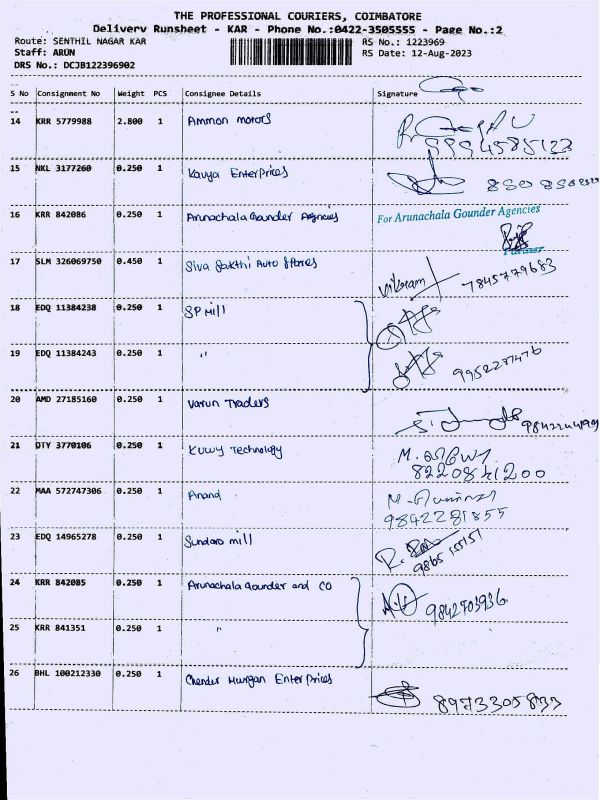 THE PROFESSIONAL COURIERS, COIMBATORE
Delivery Runsheet - KAR - Phone No.:0422-3505555 - Page No.:2
Route: SENTHIL NAGAR KAR RS No.: 1223969
Staff: ARUN RS Date: 12-Aug-2023
DRS No.: DCJB122396902
S No Consignment No Weight PCS Consignee Details Signature
14 KRR 5779988 2.800 1 Ammon motors
9994585123
15 NKL 3177260 0.250 1 Kavya Enterprices
16 KRR 842086 0.250 1 Arunachala Gounder Agencies For Arunachala Gounder Agencies
Partner
17 SLM 326069750 0.450 1 Siva Sakthi Auto Stores
Vikram 7845779683
18 EDQ 11384238 0.250 1 SP Mill
19 EDQ 11384243 0.250 1 "
9952287476
20 AMD 27185160 0.250 1 Varun Traders
21 DTY 3770106 0.250 1 Kuwy Technology
8220841200
22 MAA 572747306 0.250 1 Anand
9842281855
23 EDQ 14965278 0.250 1 Sundara mill
9865155157
24 KRR 842085 0.250 1 Arunachala Gounder and CO
9842703936
25 KRR 841351 0.250 1 "
26 BHL 100212330 0.250 1 Chendur Murgan Enterprices
8973305833